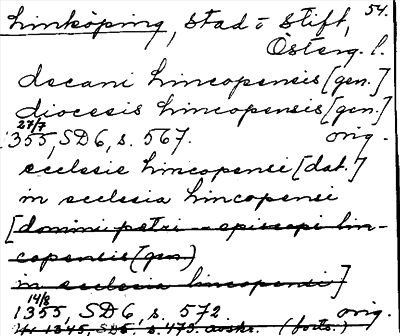 54.
Linköping, stad o stift,
Österg. l.
decani lincopensis [gen.]
diocesis lincopensis [gen.]
27/7
1355, SD6, s. 567. orig.
ecclesie lincopensi [dat.]
in ecclesia lincopensi
[domini petri episcopi lin-
copensis (gen)
in ecclesia lincopensi]
14/8
1355, SD6, s. 572 orig.
1345, SD5, s. 473. avskr. (forts.)